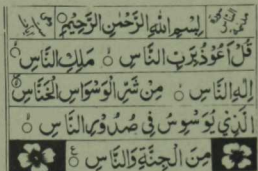 بِسْمِ اللهِ الرَّحْمٰنِ الرَّحِيْمِ
قُلْ اَعُوْذُ بِرَبِّ النَّاسِ ۙ مَلِكِ النَّاسِ ۙ
اِلٰهِ النَّاسِ ۙ مِنْ شَرِّ الْوَسْوَاسِ الْخَنَّاسِ
الَّذِيْ يُوَسْوِسُ فِيْ صُدُوْرِ النَّاسِ ۙ
مِنَ الْجِنَّةِ وَالنَّاسِ